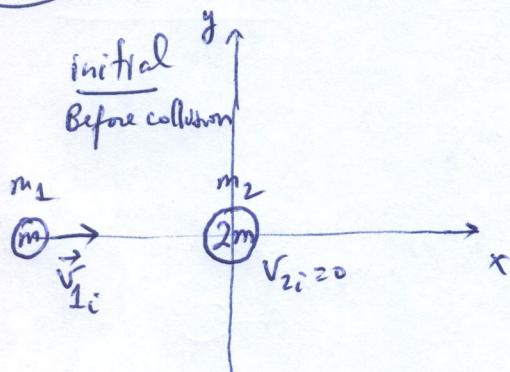 y
initial
Before collision
m₁
m₂
m
2m
V⃗₁ᵢ
V₂ᵢ=0
x